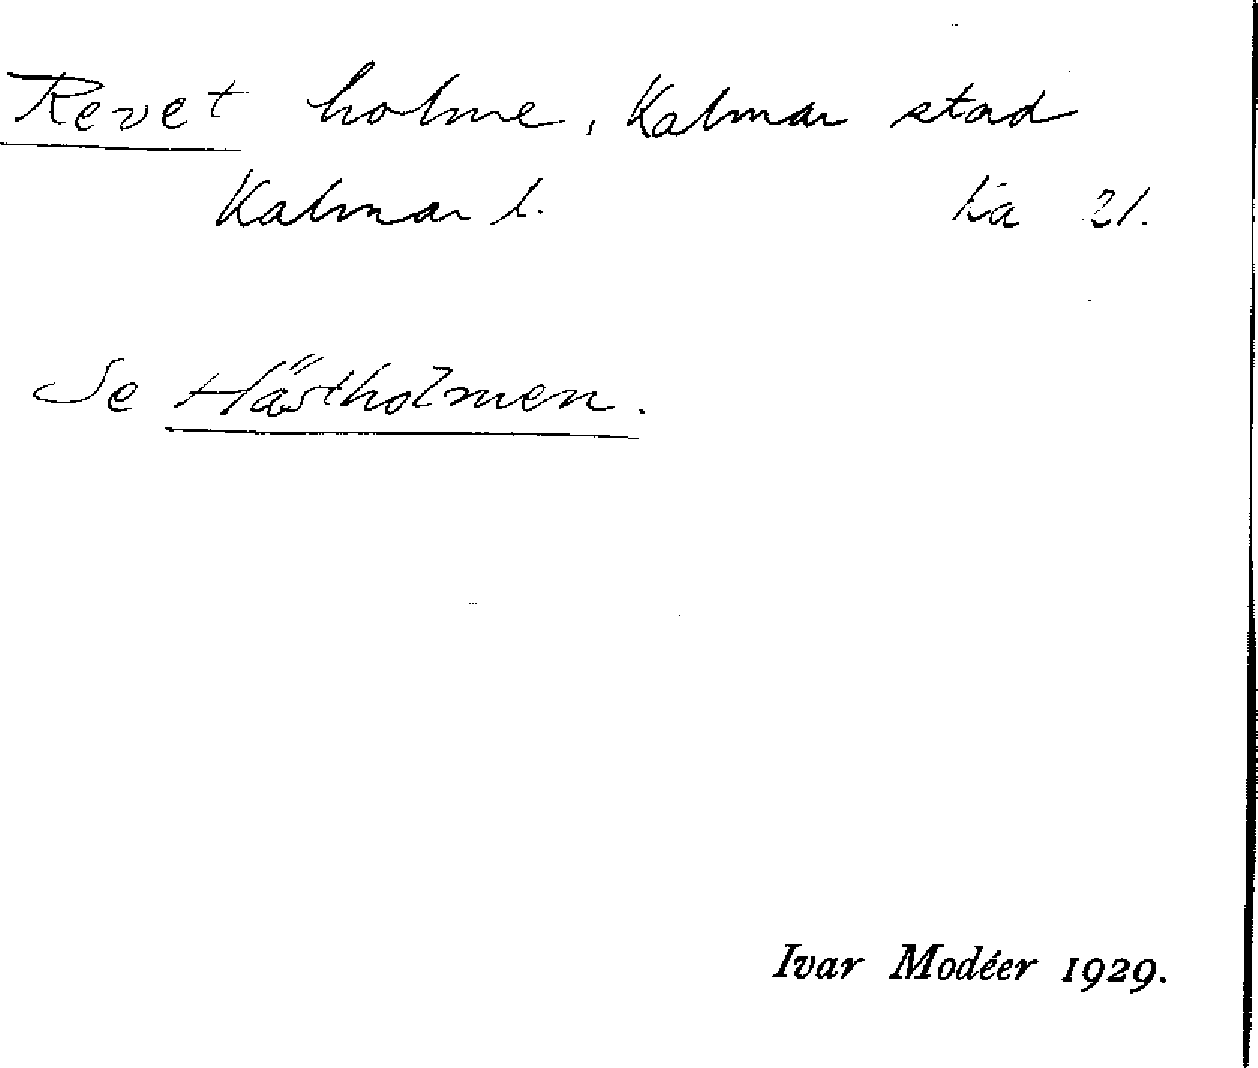 Revet holme, Kalmar stad
Kalmar l. ka 21.
Se Hästholmen.
Ivar Modéer 1929.